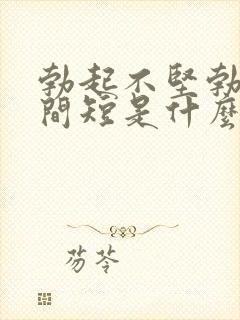 勃起不堅勃
間短是什麼
芴苓